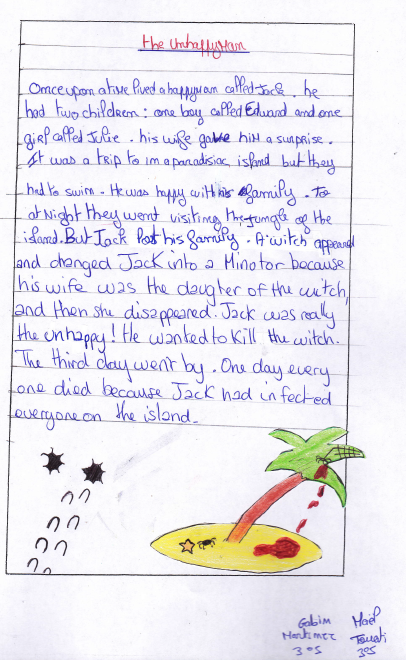 the unhappy man
Once upon a time lived a happy man called Jack. he
had two children: one boy called Edward and one
girl called Julie. his wife gave him a surprise.
It was a trip to in a paradisiac island but they
had to swim. He was happy with his family. To
at Night they went visiting the jungle of the
island. But Jack lost his family. A witch appeared
and changed Jack into a Minotor because
his wife was the daugter of the witch,
and then she disappeared. Jack was really
the unhappy! He wanted to kill the witch.
The third day went by. One day every
one died because Jack had infected
everyone on the island.
Gabin Maël
Martinez Touati
3°5 3°5